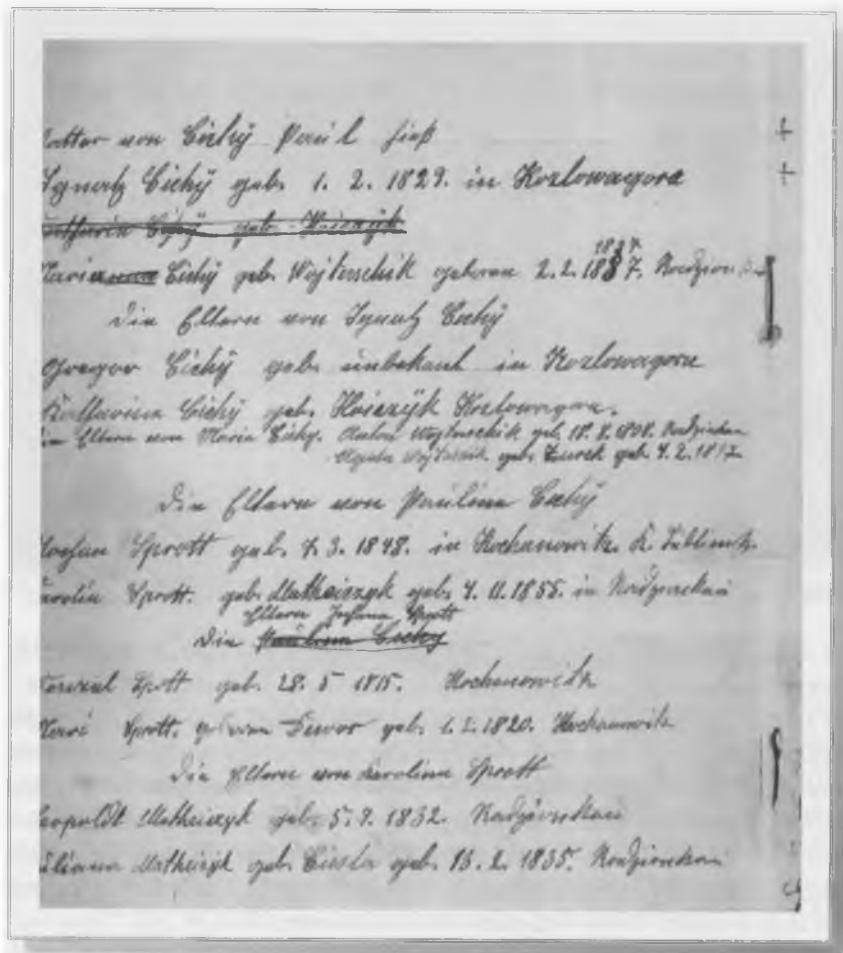 von Cichÿ Paul hieß
Ignatz Cichÿ geb. 1. 2. 1829. in Kozlowagora
Cichÿ geb.
Cichÿ geb. Wojtaschik geboren 2. 2. 1837. 1837.
Die Eltern von Ignatz Cichÿ
Gregor Cichÿ geb. unbekant in Kozlowagora
Katharina Cichÿ geb. Kozlowagora.
Eltern von Maria Cichy. Anton Wojtaschik geb. 18. 8. 1808. Radzionkau
geb. Zurek geb. 4. 2. 1817
Die Eltern von Paulina Cichÿ
Sprott geb. 7. 3. 1848. in Kochanowitz K. Lublinitz.
Sprott. geb. Matheiczyk geb. 4. 11. 1855. in Radzionkau
Eltern Johann Sprott
Die Paulina Cichy
Sprott geb. 28. 5 1815. Kochanowitz
Sprott. geboren geb. 1. 2. 1820. Kochanowitz
Die Eltern von Karolina Sprott
Leopoldt Matheiczyk geb. 5. 9. 1832. Radzionkau
Juliana Matheiczyk geb. Ciesla geb. 15. 2. 1835. Radzionkau